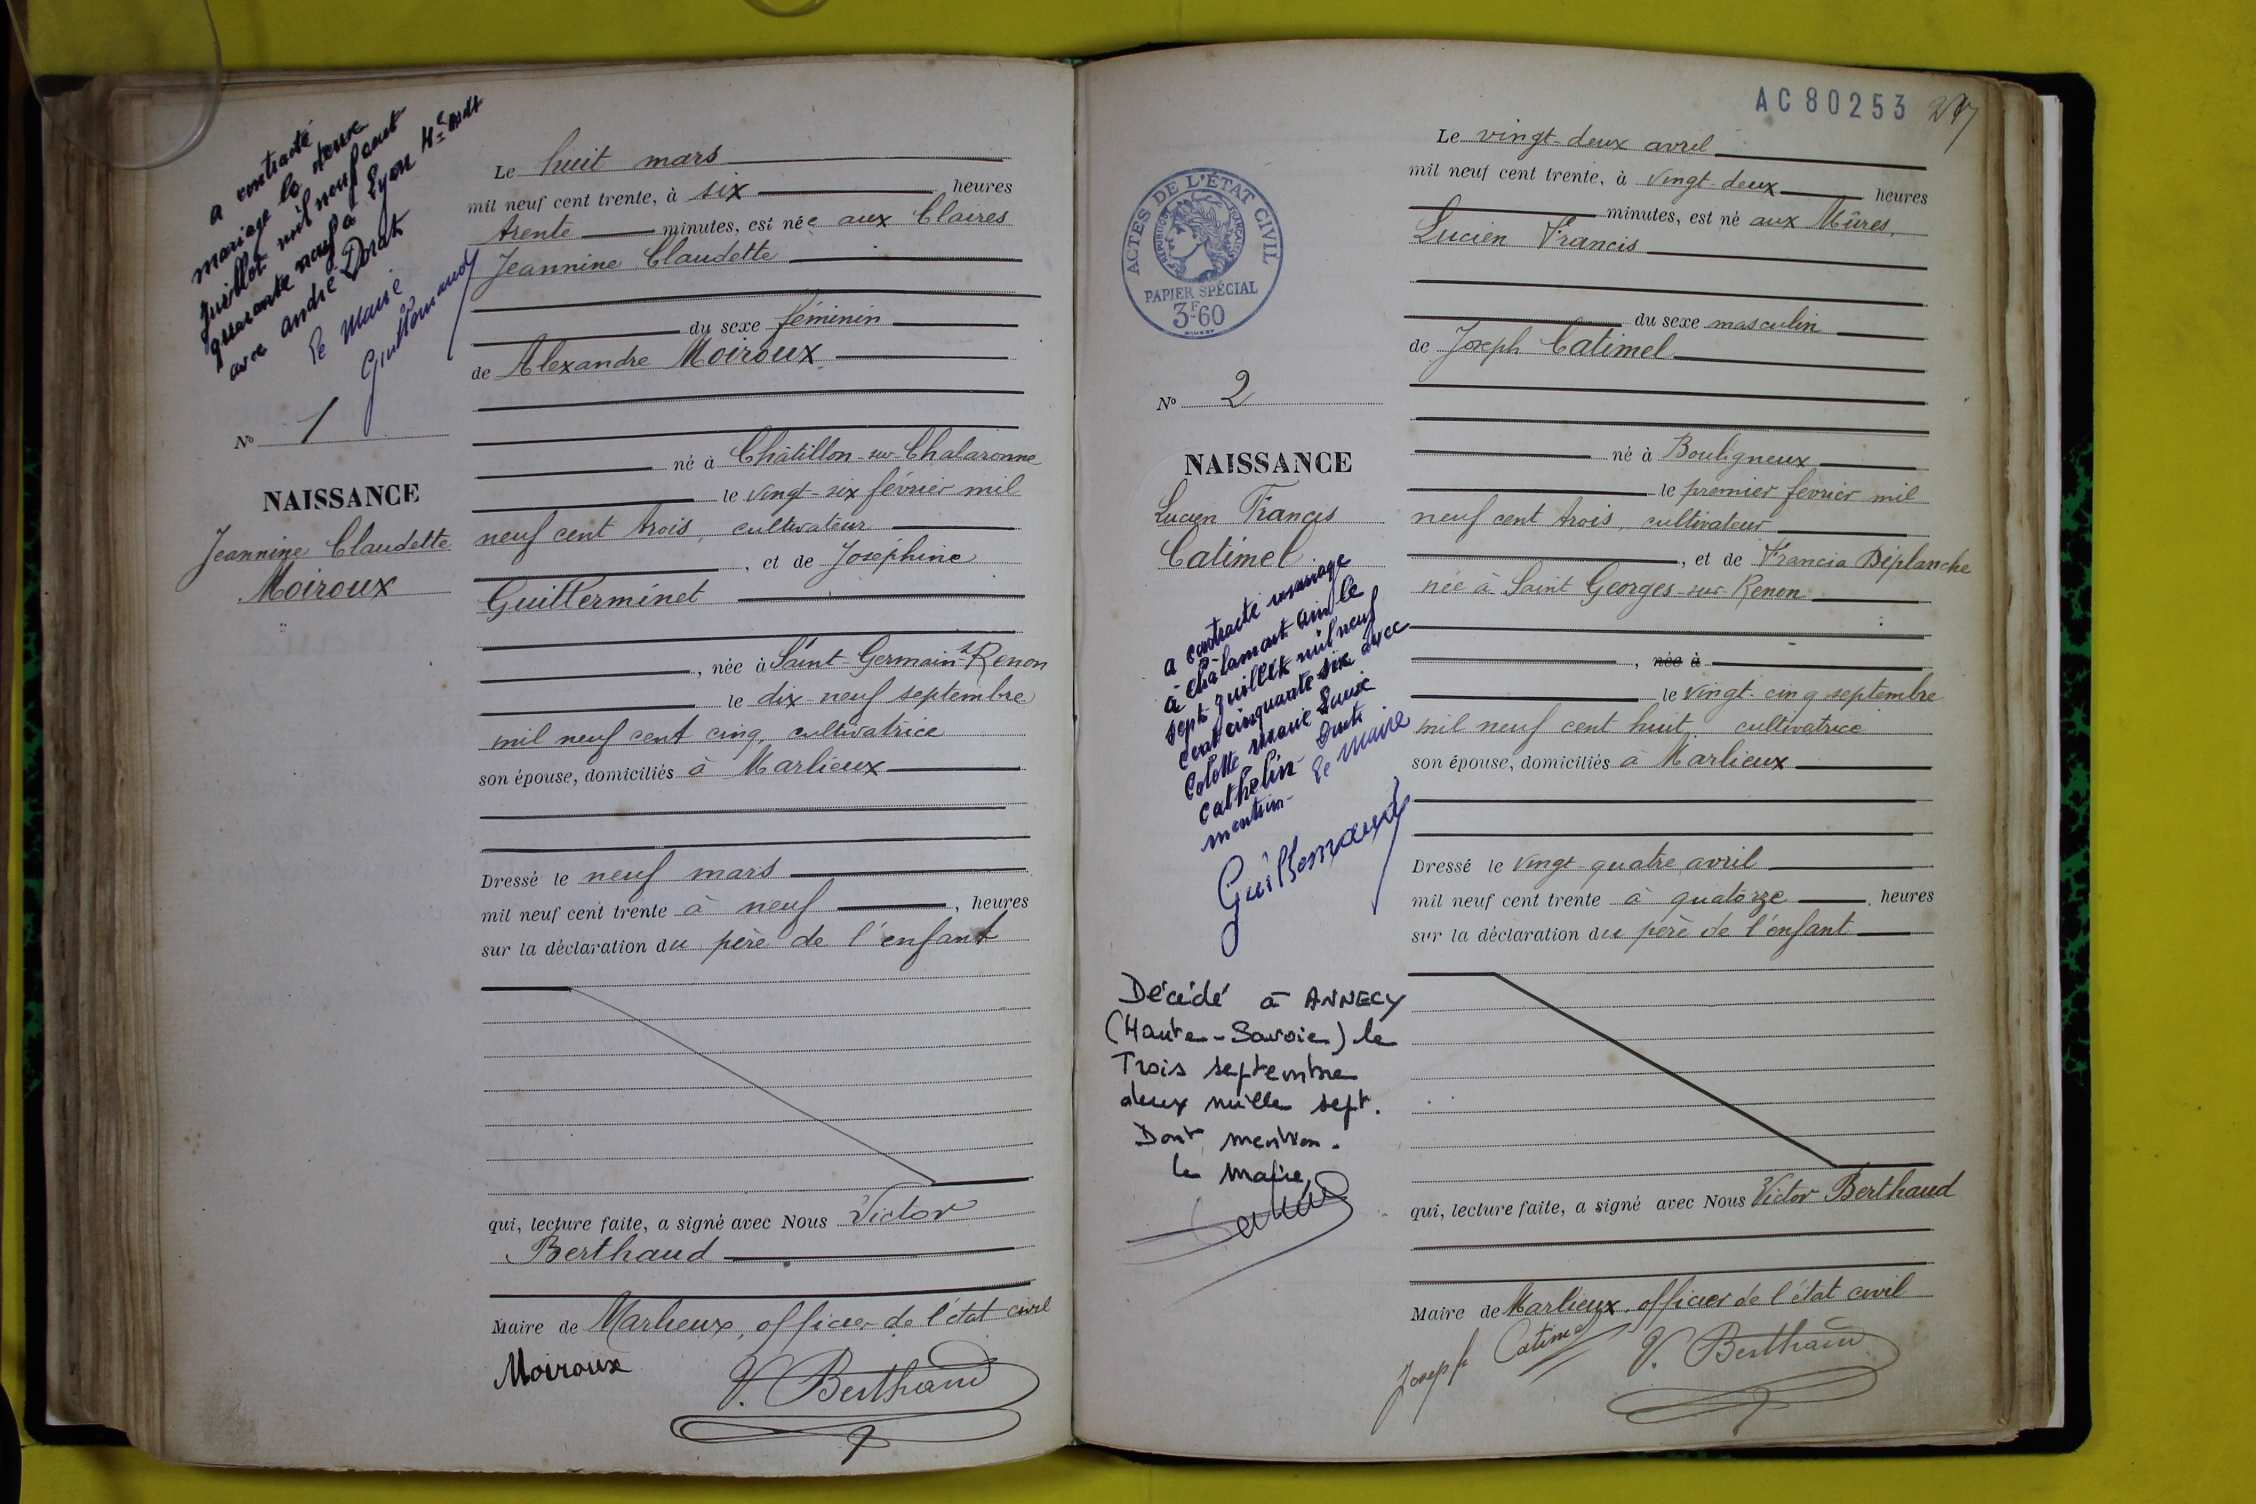 a contracté
mariage le douze
Juillet mil neuf cent
quarante neuf à Lyon
avec André Dorat
Le Maire
Guillemaud
N° 1
NAISSANCE
Jeannine Claudette
Moiroux
Le huit mars
mil neuf cent trente, à six heures
trente minutes, est née aux Claires
Jeannine Claudette
du sexe féminin
de Alexandre Moiroux
né à Châtillon-sur-Chalaronne
le vingt-six février mil
neuf cent trois, cultivateur
, et de Joséphine
Guillerminet
, née à Saint-Germain-s-Renon
le dix-neuf septembre
mil neuf cent cinq, cultivatrice
son épouse, domiciliés à Marlieux
Dressé le neuf mars
mil neuf cent trente à neuf , heures
sur la déclaration du père de l'enfant
qui, lecture faite, a signé avec Nous Victor
Berthaud
Maire de Marlieux, officier de l'état civil
Moiroux V. Berthaud
AC 80253
ACTES DE L'ÉTAT CIVIL
RÉPUBLIQUE FRANÇAISE
PAPIER SPÉCIAL
3F60
N° 2
NAISSANCE
Lucien Francis
Catimel
a contracté mariage
à Châlamont Ain le
sept juillet mil neuf
cent cinquante six avec
Colette Marie Louise
Cathelin Dont
mention Le Maire
Guillemaud
Décédé à ANNECY
(Haute-Savoie) le
Trois septembre
deux mille sept.
Dont mention.
le Maire,
Le vingt-deux avril
mil neuf cent trente, à vingt-deux heures
minutes, est né aux Mûres,
Lucien Francis
du sexe masculin
de Joseph Catimel
né à Bouligneux
le premier février mil
neuf cent trois, cultivateur
, et de Francia Déplanche
née à Saint Georges-sur-Renon
, née à
le vingt-cinq septembre
mil neuf cent huit, cultivatrice
son épouse, domiciliés à Marlieux
Dressé le vingt-quatre avril
mil neuf cent trente à quatorze , heures
sur la déclaration du père de l'enfant
qui, lecture faite, a signé avec Nous Victor Berthaud
Maire de Marlieux, officier de l'état civil
Joseph Catimel V. Berthaud